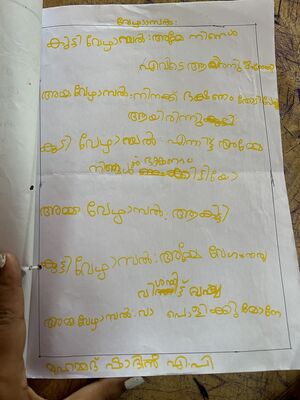 വേഴാമ്പൽ
കുട്ടി വേഴാമ്പൽ: അമ്മേ നിങ്ങൾ
എവിടെ ആയിരുന്നു ഇത്രനേരം
അമ്മ വേഴാമ്പൽ: നിനക്ക് ഭക്ഷണം തേടി
ആയിരിന്നു കുട്ടി
കുട്ടി വേഴാമ്പൽ എന്നിട്ട് അമ്മേ
നിങ്ങൾ ഭക്ഷണം കിട്ടിയോ
അമ്മ വേഴാമ്പൽ. ആ കുട്ടി
കുട്ടി വേഴാമ്പൽ: അമ്മേ വേഗം
വിശന്നിട്ട് വയ്യ
അമ്മ വേഴാമ്പൽ. വാ പൊളിക്കു മോനേ
മുഹമ്മദ് ഷാദിൽ എ.പി